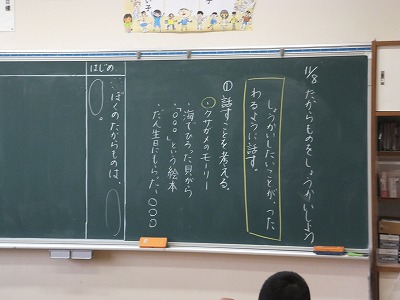 11/8 たからものをしょうかいしよう
しょうかいしたいことが、つた
わるように話す。
① 話すことを考える。
○クサガメのモーリー
・海でひろった貝がら
・「○○○」という絵本
・たん生日にもらった、○○○
はじめ
ぼくのたからものは、
。